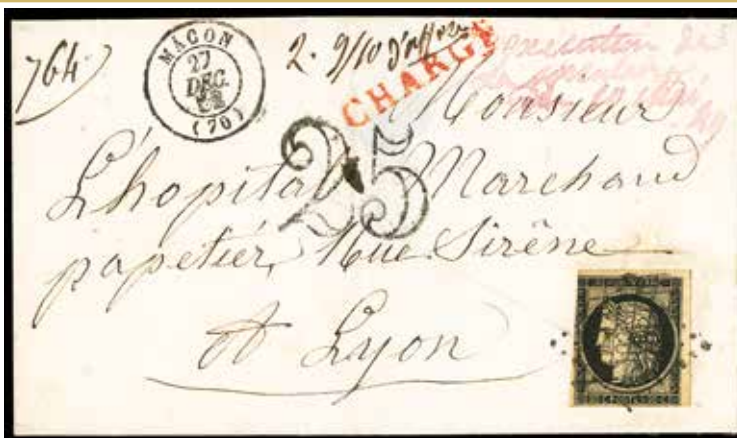 764
MACON
27
DEC.
(70)
2. 9/10
CHARGÉ
25
Monsieur
L'hopital Marchand
papetier, Rue Sirène
A Lyon